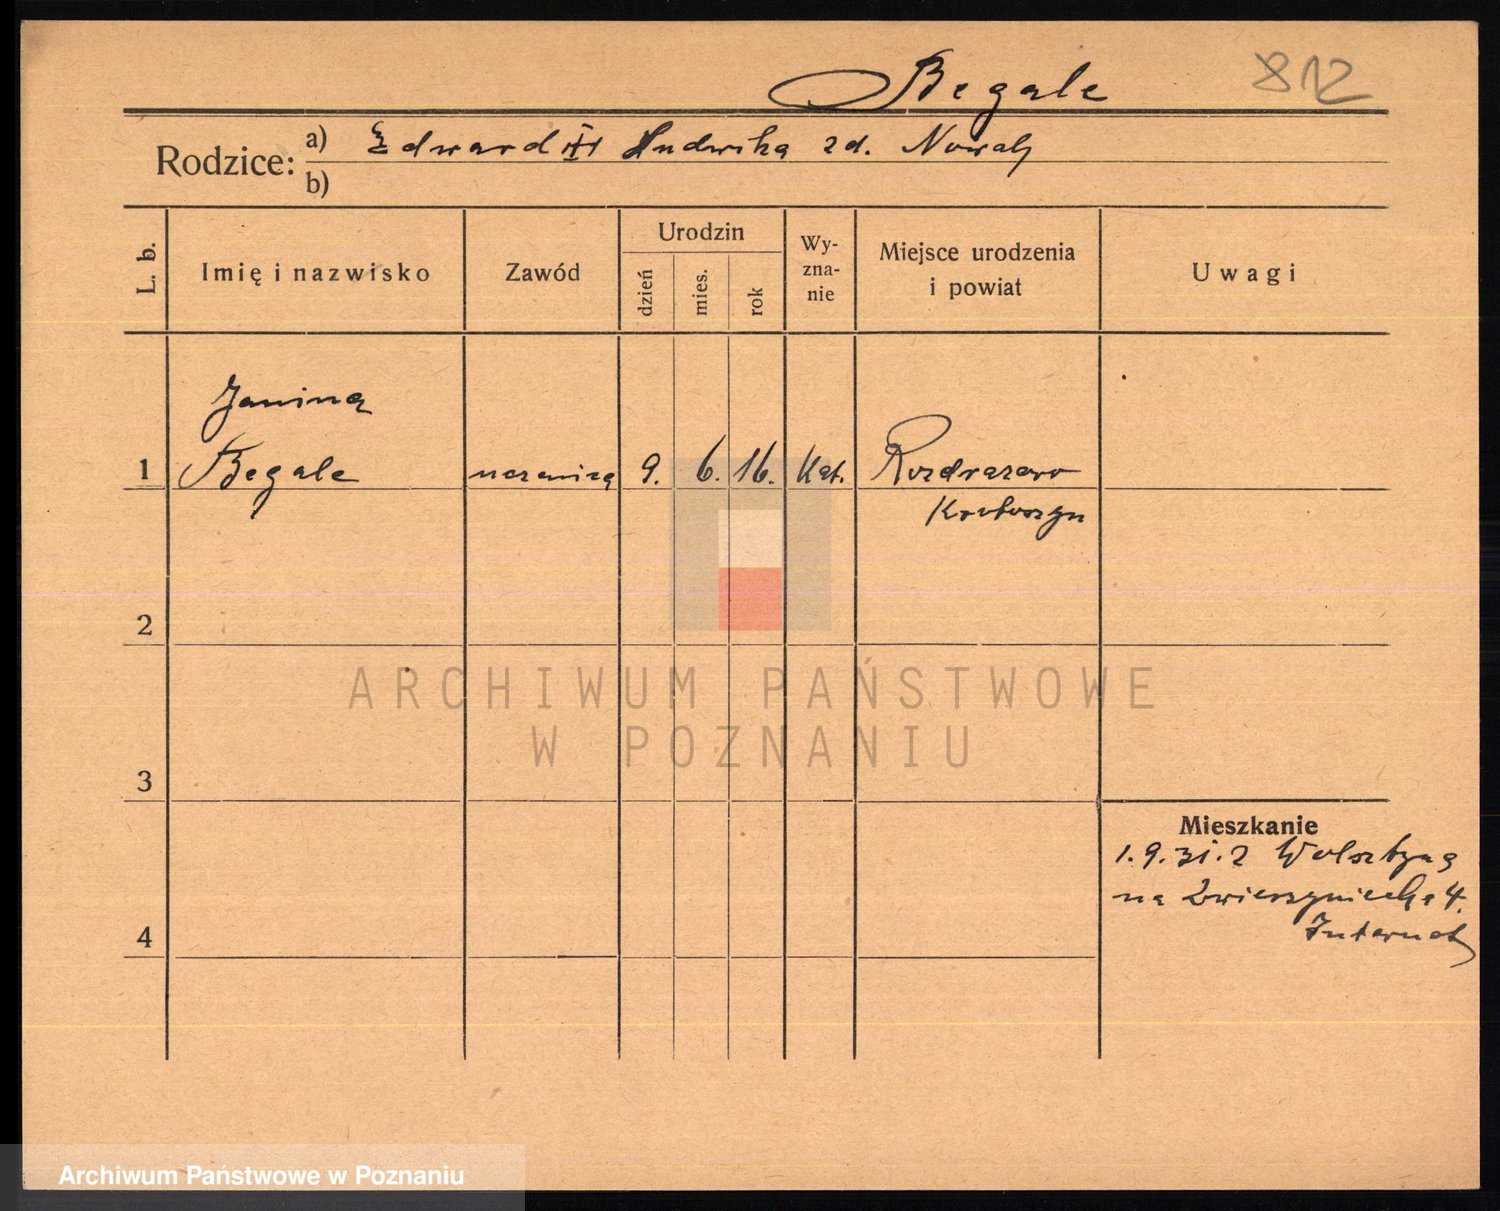 Begale 812
Rodzice: a) Edward i Ludwika zd. Nowak
b)
L. b.
Imię i nazwisko
Zawód
Urodzin
dzień
mies.
rok
Wy-
zna-
nie
Miejsce urodzenia
i powiat
Uwagi
Janina
1 Begale uczenica 9. 6. 16. Kat. Rozdrazewo
Krotoszyn
2
ARCHIWUM PAŃSTWOWE
W POZNANIU
3
Mieszkanie
1.9.31. z Wolsztyna
na Zwierzyniecka 4.
4
Internat
Archiwum Państwowe w Poznaniu